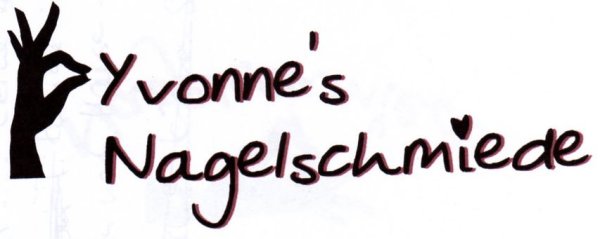 Yvonne's
Nagelschmiede